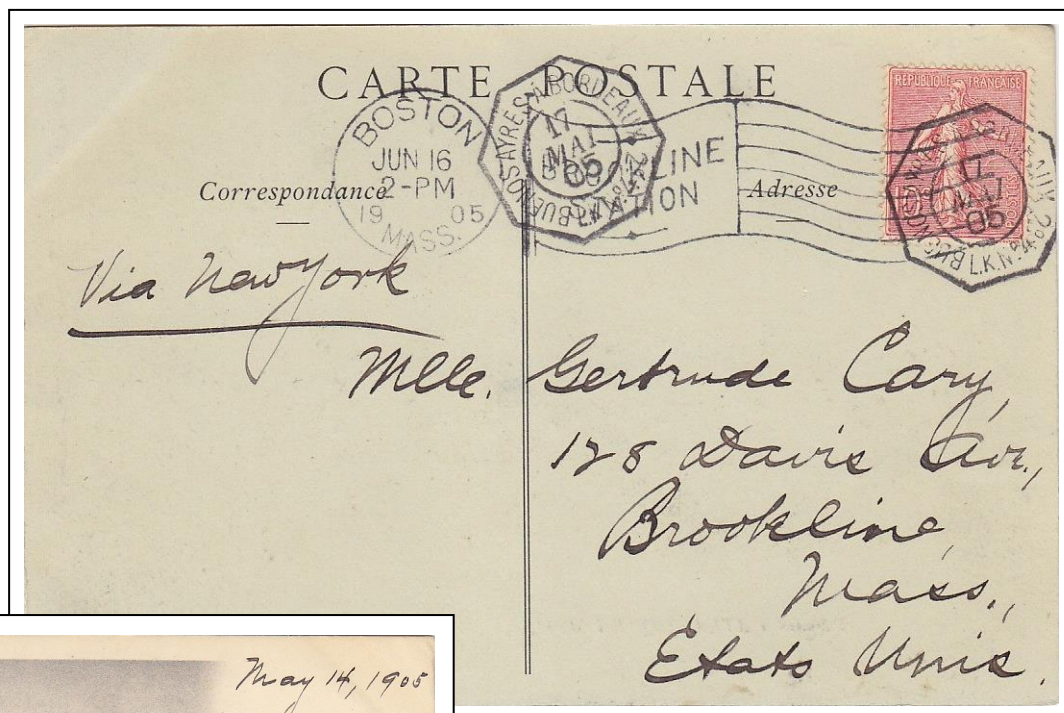 CARTE POSTALE
BOSTON
JUN 16
2-PM
19 05
MASS.
BUENOS AYRES A BORDEAUX
17
MAI
05
L.K. Nº4 2º
BROOKLINE
STATION
REPUBLIQUE FRANÇAISE
10
POSTES
17
MAI
05
L.K.Nº4 2º
Correspondance
Adresse
Via New York
Mlle. Gertrude Cary,
128 Davis Ave.,
Brookline,
Mass.,
Etats Unis.
May 14, 1905